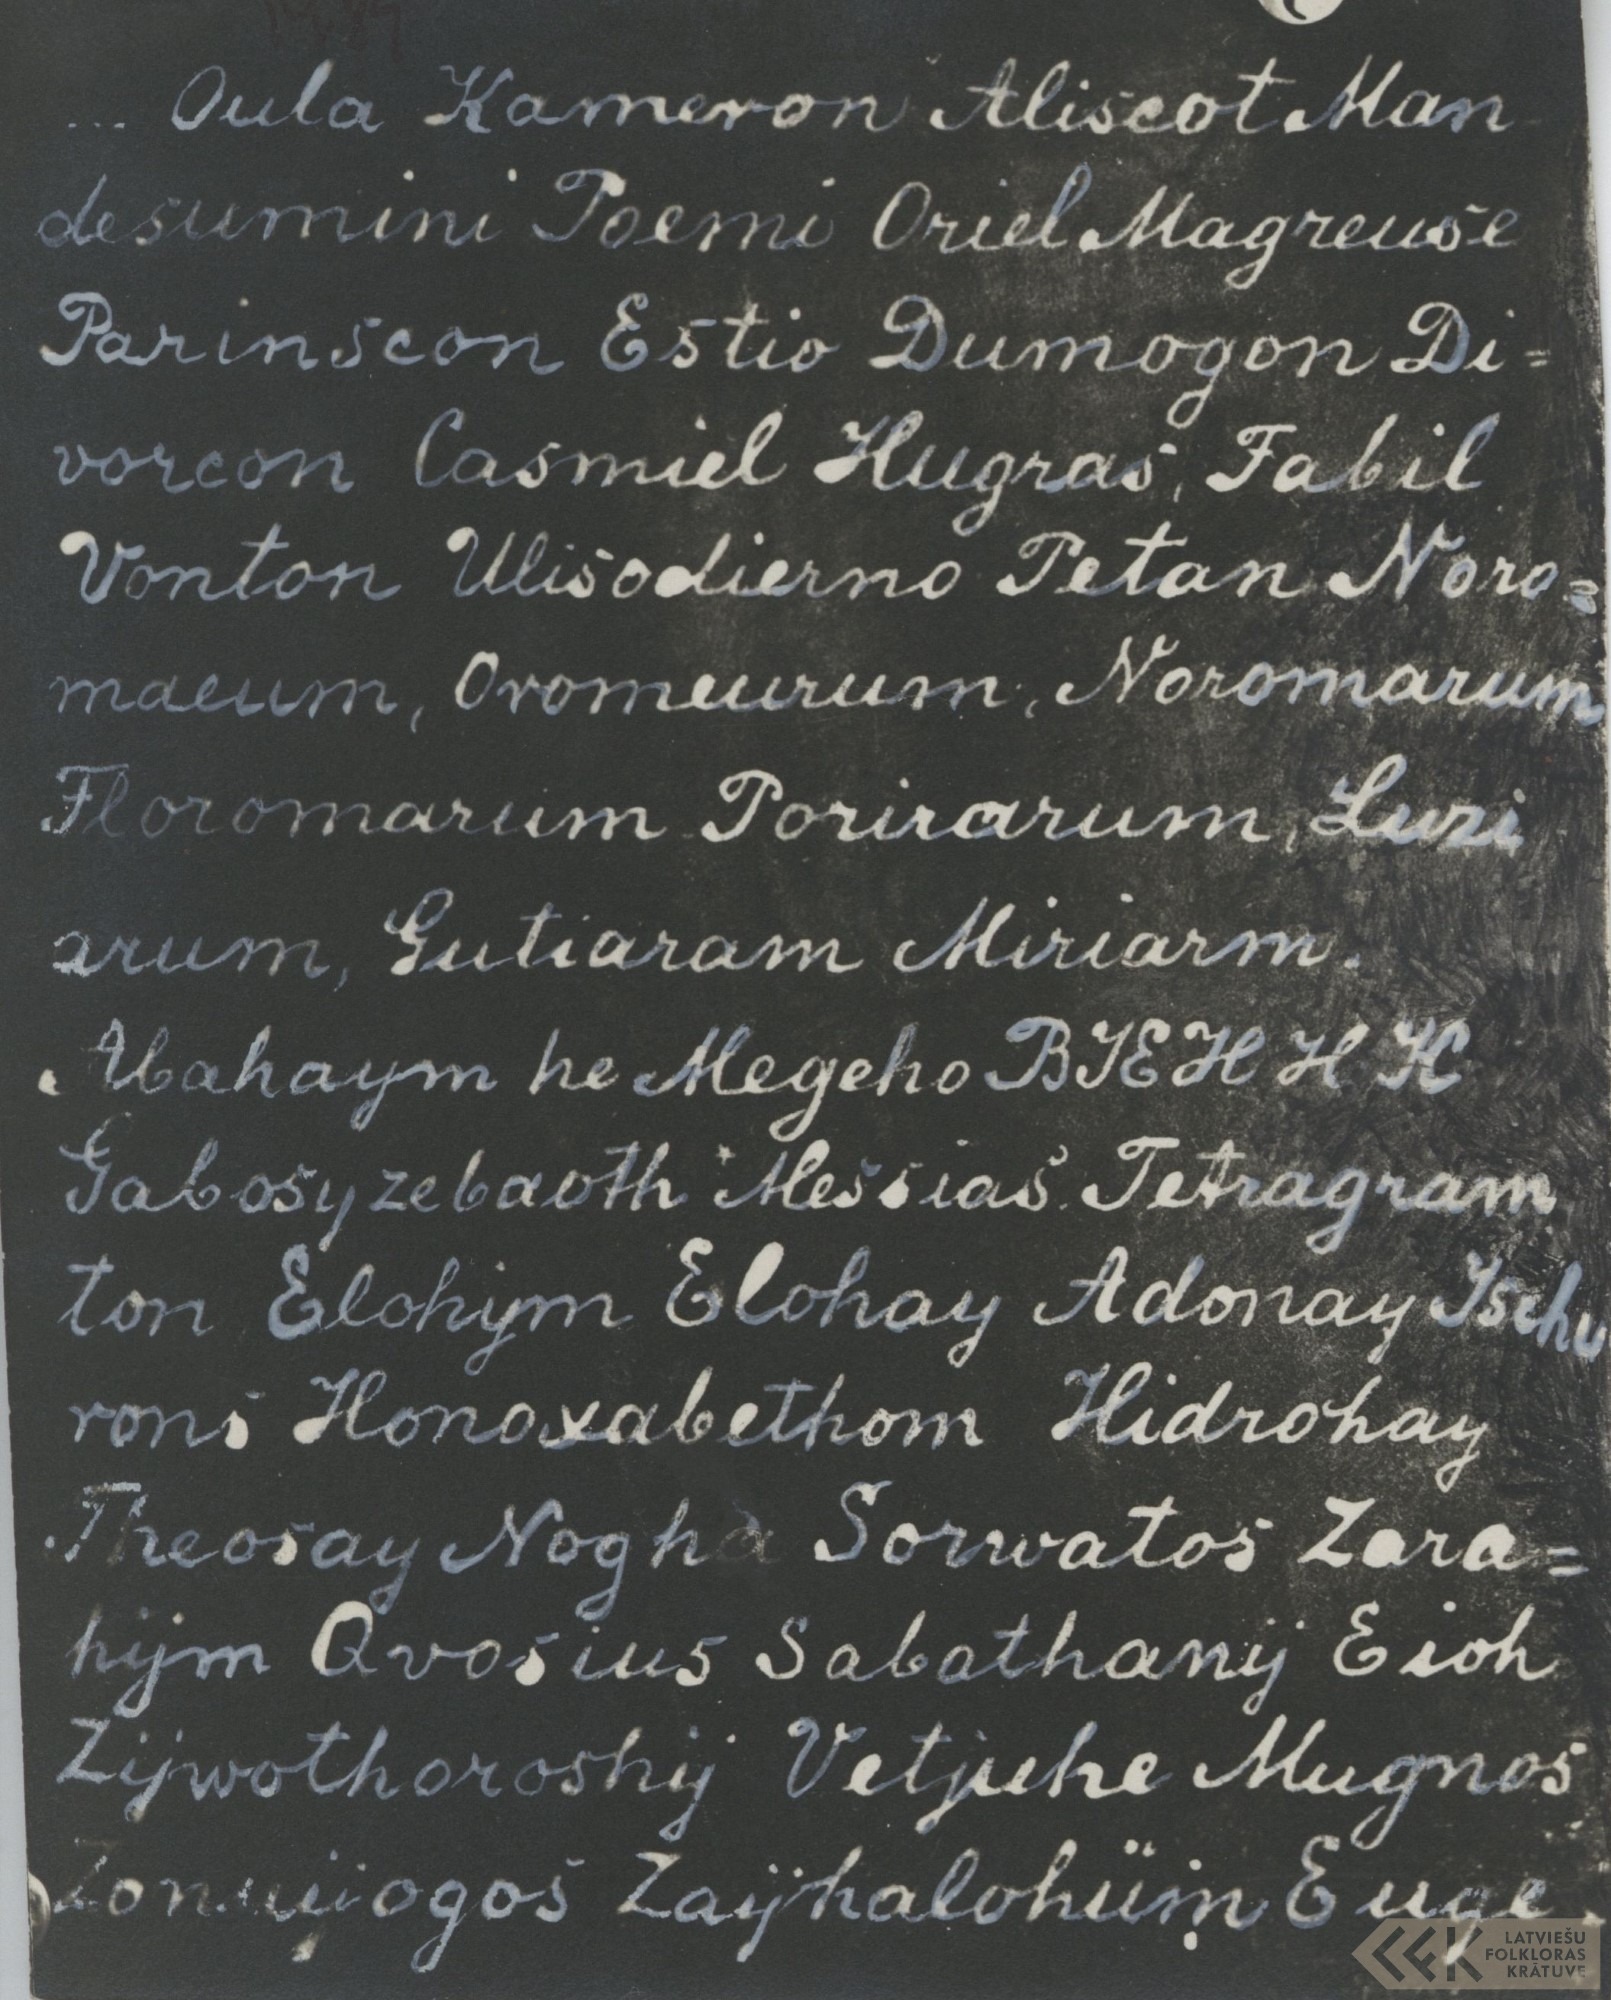 ... Oula Kameron Aliscot Man
desumini Poemi Oriel Magreuse
Parinscon Estio Dumogon Di=
vorcon Casmiel Hugras, Fabil
Vonton Ulisodierno Petan Noro=
maeum, Oromeurum, Noromarum
Floromarum Porirarum, Luzi
arum, Gutiaram Miriarm.
Abahaym he Megeho BIEHHK
Gabosyzebaoth Messias Tetragram
ton Elohym Elohay Adonay Ischu
rons Honoxabethom Hidrohay
Theosay Nogha Sorwatos Zara=
hijm Qvosius Sabathanij Eioh
Zijwothoroshij Vetjuhe Mugnos
Zaÿhalohüm Euge
LATVIEŠU
FOLKLORAS
KRĀTUVE